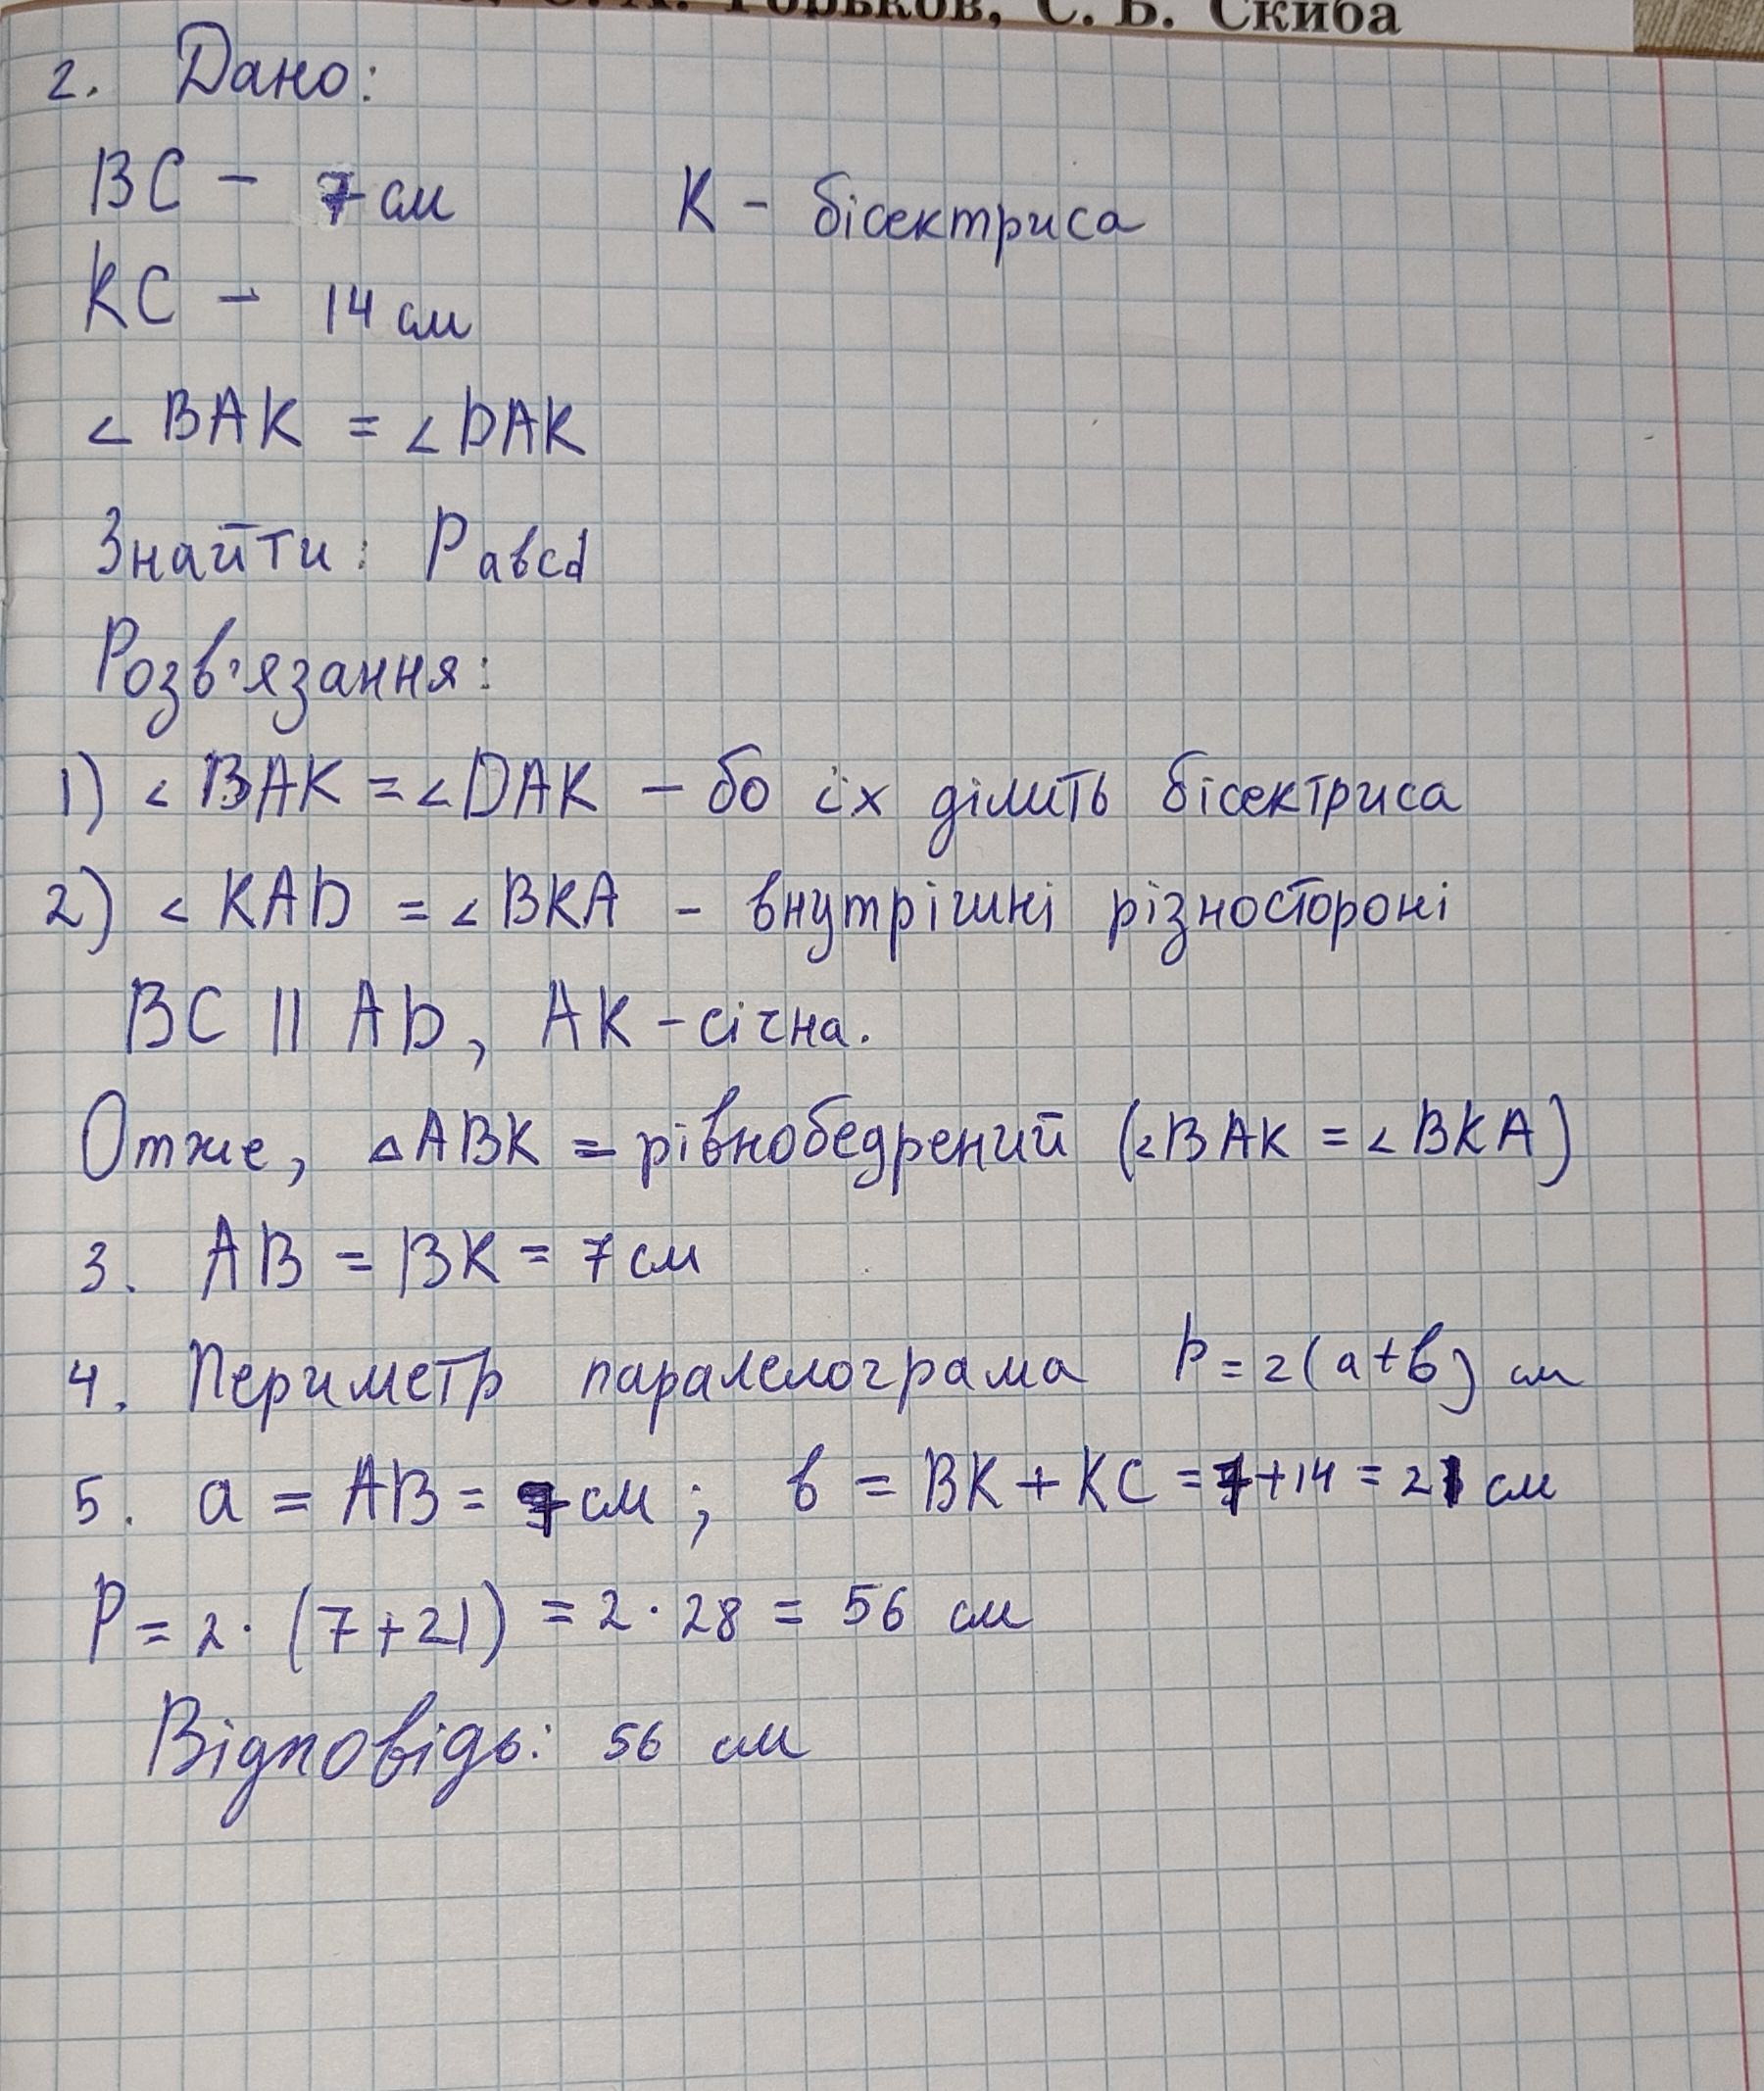 Горьков, С. Б. Скиба
2. Дано:
BC - 7 см K - бісектриса
KC - 14 см
∠ BAK = ∠ DAK
Знайти: P авсd
Розв'язання:
1) ∠ BAK = ∠ DAK - бо їх ділить бісектриса
2) ∠ KAD = ∠ BKA - внутрішні різностороні
BC || AD, AK - січна.
Отже, △ABK = рівнобедрений (∠BAK = ∠BKA)
3. AB = BK = 7 см
4. Периметр паралелограма P = 2(a+b) см
5. a = AB = 7 см ; b = BK + KC = 7 + 14 = 21 см
P = 2 · (7+21) = 2 · 28 = 56 см
Відповідь: 56 см